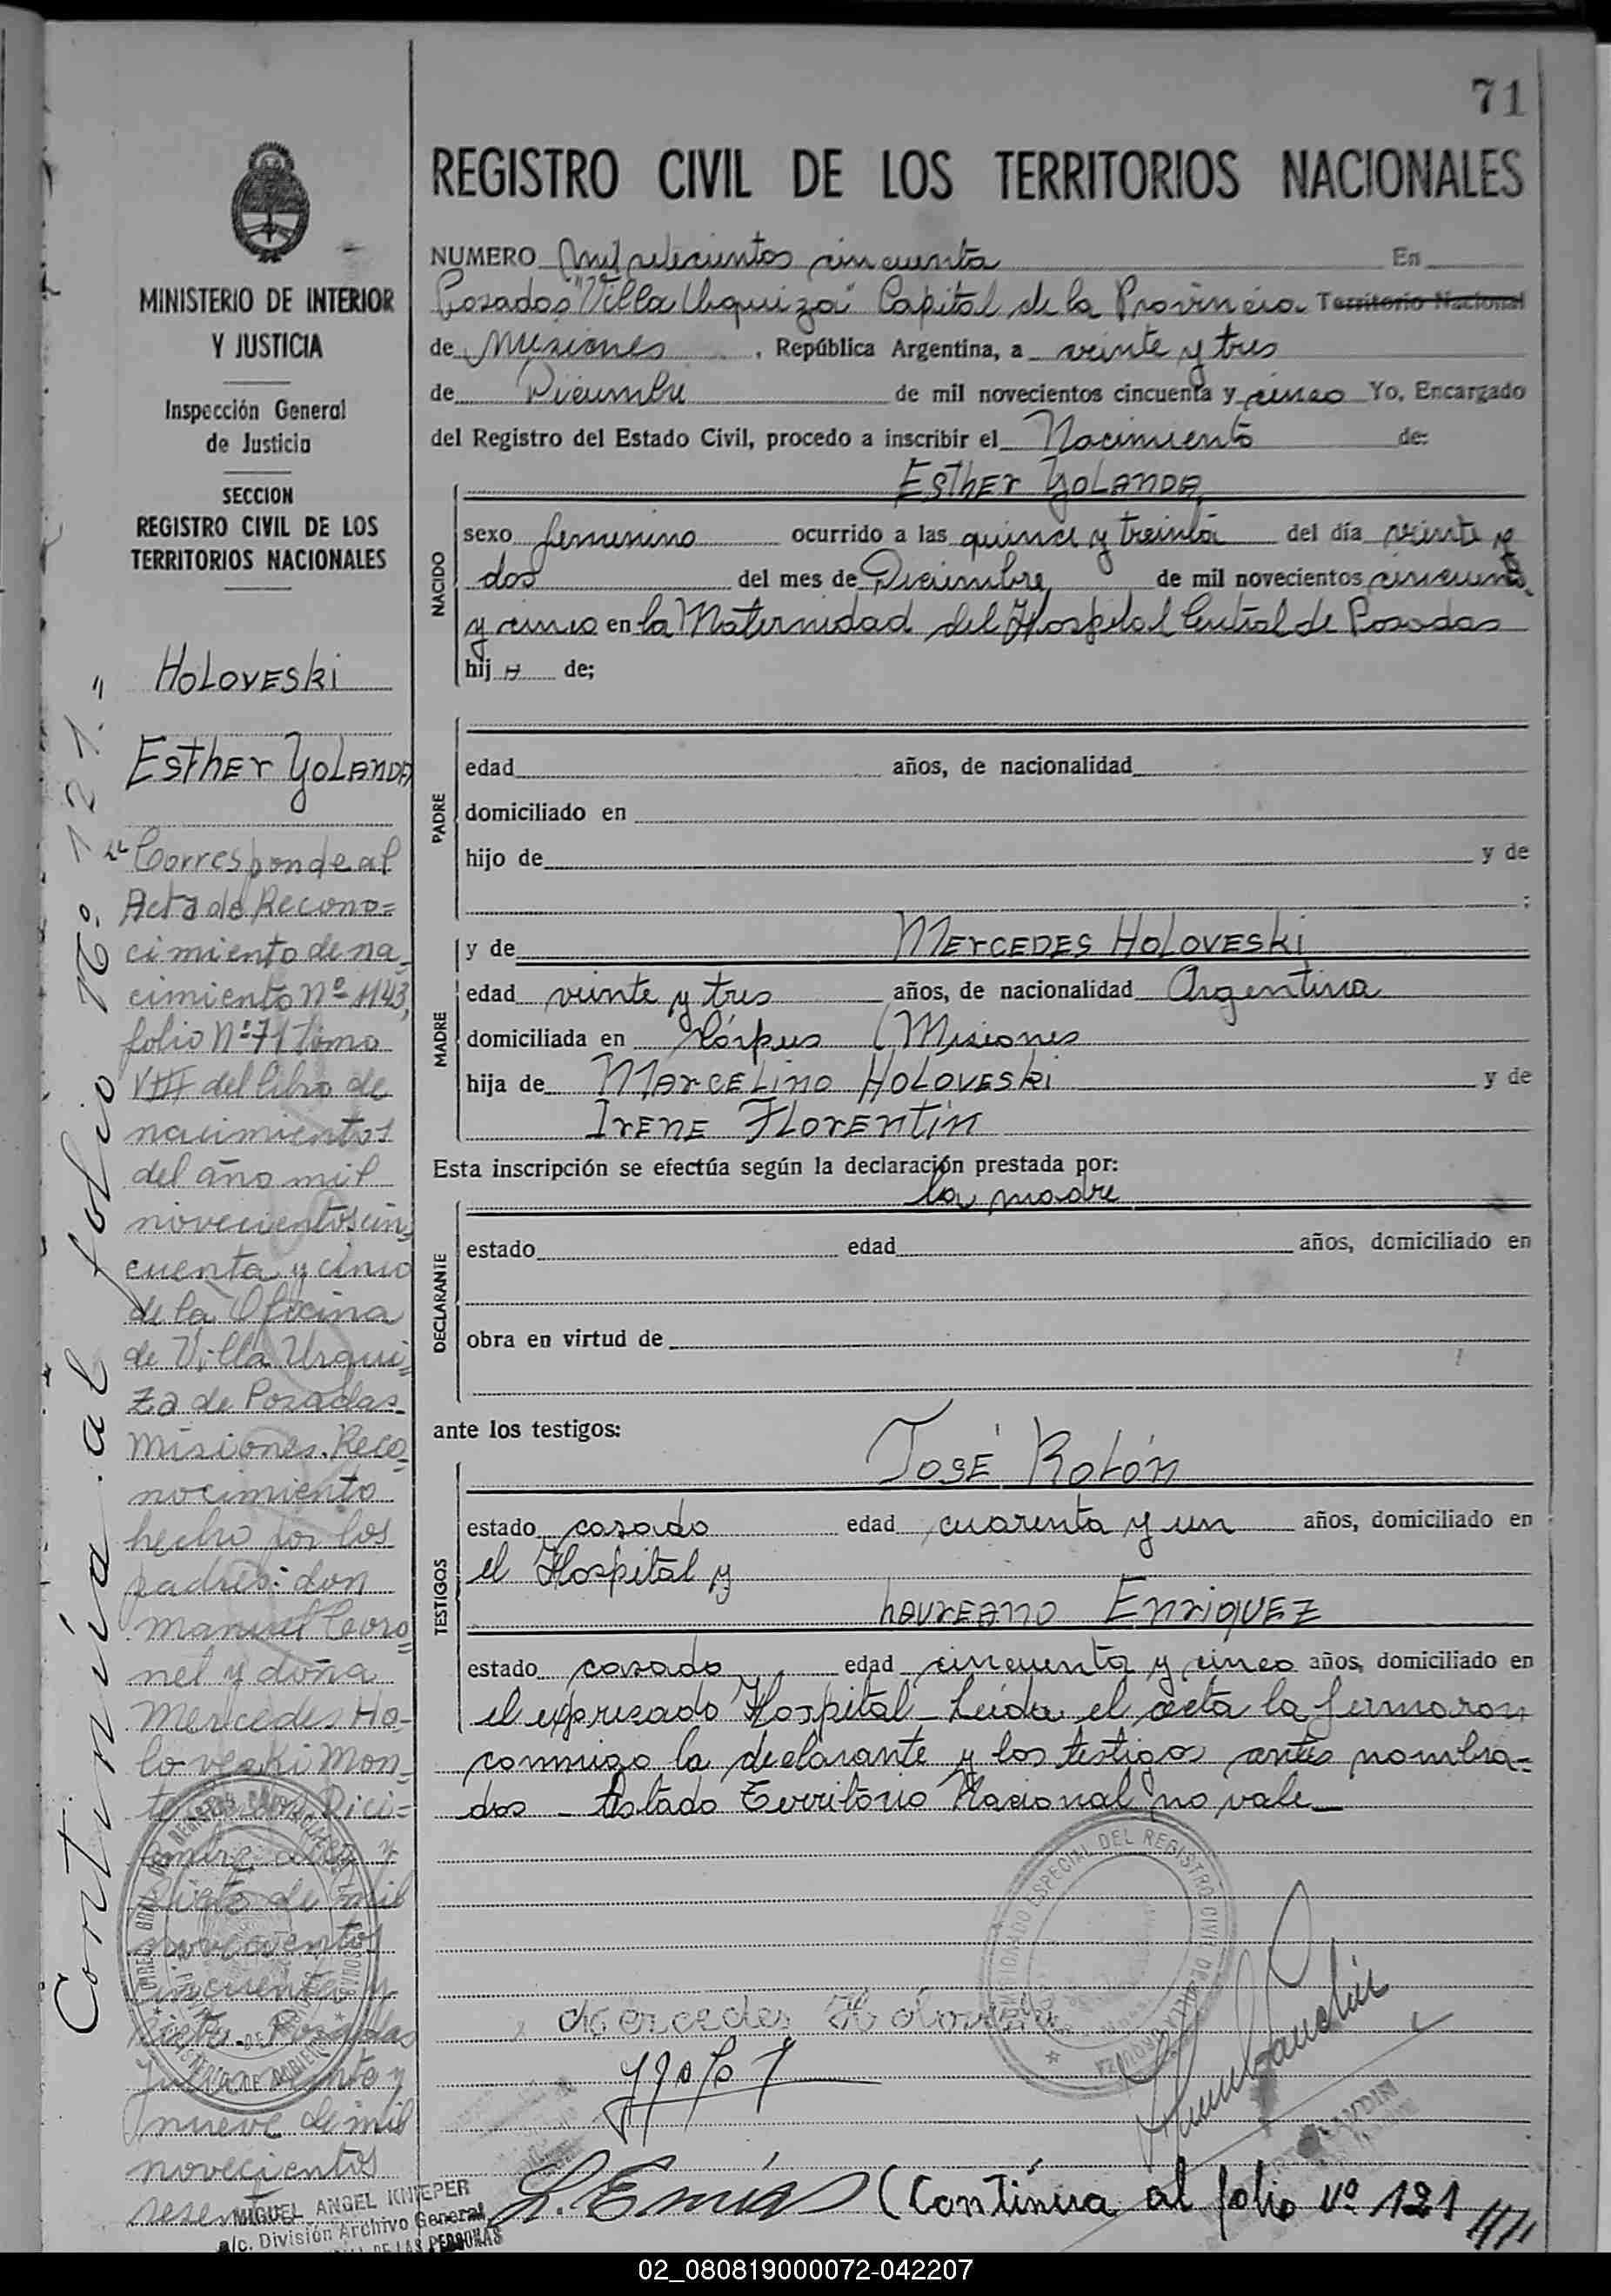 71
REGISTRO CIVIL DE LOS TERRITORIOS NACIONALES
MINISTERIO DE INTERIOR
Y JUSTICIA
Inspección General
de Justicia
SECCION
REGISTRO CIVIL DE LOS
TERRITORIOS NACIONALES
HOLOVESKI
ESTHER YOLANDA
"Corresponde al
Acta de Recono=
cimiento de na-
cimiento Nº 1143,
folio Nº 71 tomo
VIII del libro de
nacimientos
del año mil
novecientos cin-
cuenta y cinco
de la Oficina
de Villa Urqui-
za de Posadas-
Misiones. Reco-
nocimiento
hecho por los
padres: don
Manuel Coro=
nel y doña
Mercedes Ho-
loveski Mon-
Dici=
embre y
siete de mil
novecientos
cincuenta y
siete. Posadas
Julio veinte y
nueve de mil
novecientos
MIGUEL ANGEL KNIEPER
a/c. División Archivo General
DE LAS PERSONAS
Continúa al folio Nº 121."
NUMERO Mil setecientos cincuenta En
Posadas "Villa Urquiza" Capital de la Provincia Territorio Nacional
de Misiones, República Argentina, a veinte y tres
de Diciembre de mil novecientos cincuenta y cinco Yo, Encargado
del Registro del Estado Civil, procedo a inscribir el Nacimiento de:
ESTHER YOLANDA
NACIDO
sexo femenino ocurrido a las quince y treinta del día veinte y
dos del mes de Diciembre de mil novecientos cincuenta
y cinco en la Maternidad del Hospital Central de Posadas
hij a de;
PADRE
edad años, de nacionalidad
domiciliado en
hijo de y de
;
MADRE
y de MERCEDES HOLOVESKI
edad veinte y tres años, de nacionalidad Argentina
domiciliada en Córpus (Misiones
hija de MARCELINO HOLOVESKI y de
IRENE FLORENTÍN
Esta inscripción se efectúa según la declaración prestada por:
la madre
DECLARANTE
estado edad años, domiciliado en
obra en virtud de
ante los testigos:
TESTIGOS
JOSÉ ROLÓN
estado casado edad cuarenta y un años, domiciliado en
el Hospital y
LAUREANO ENRIQUEZ
estado casado edad cincuenta y cinco años, domiciliado en
el expresado Hospital - Leida el acta la firmaron
conmigo la declarante y los testigos antes nombra-
dos - Testado Territorio Nacional no vale -
ESPECIAL DEL REGISTRO CIVIL DE VILLA URQUIZA
Mercedes Holoveski
(Continúa al folio Nº 121
02_080819000072-042207